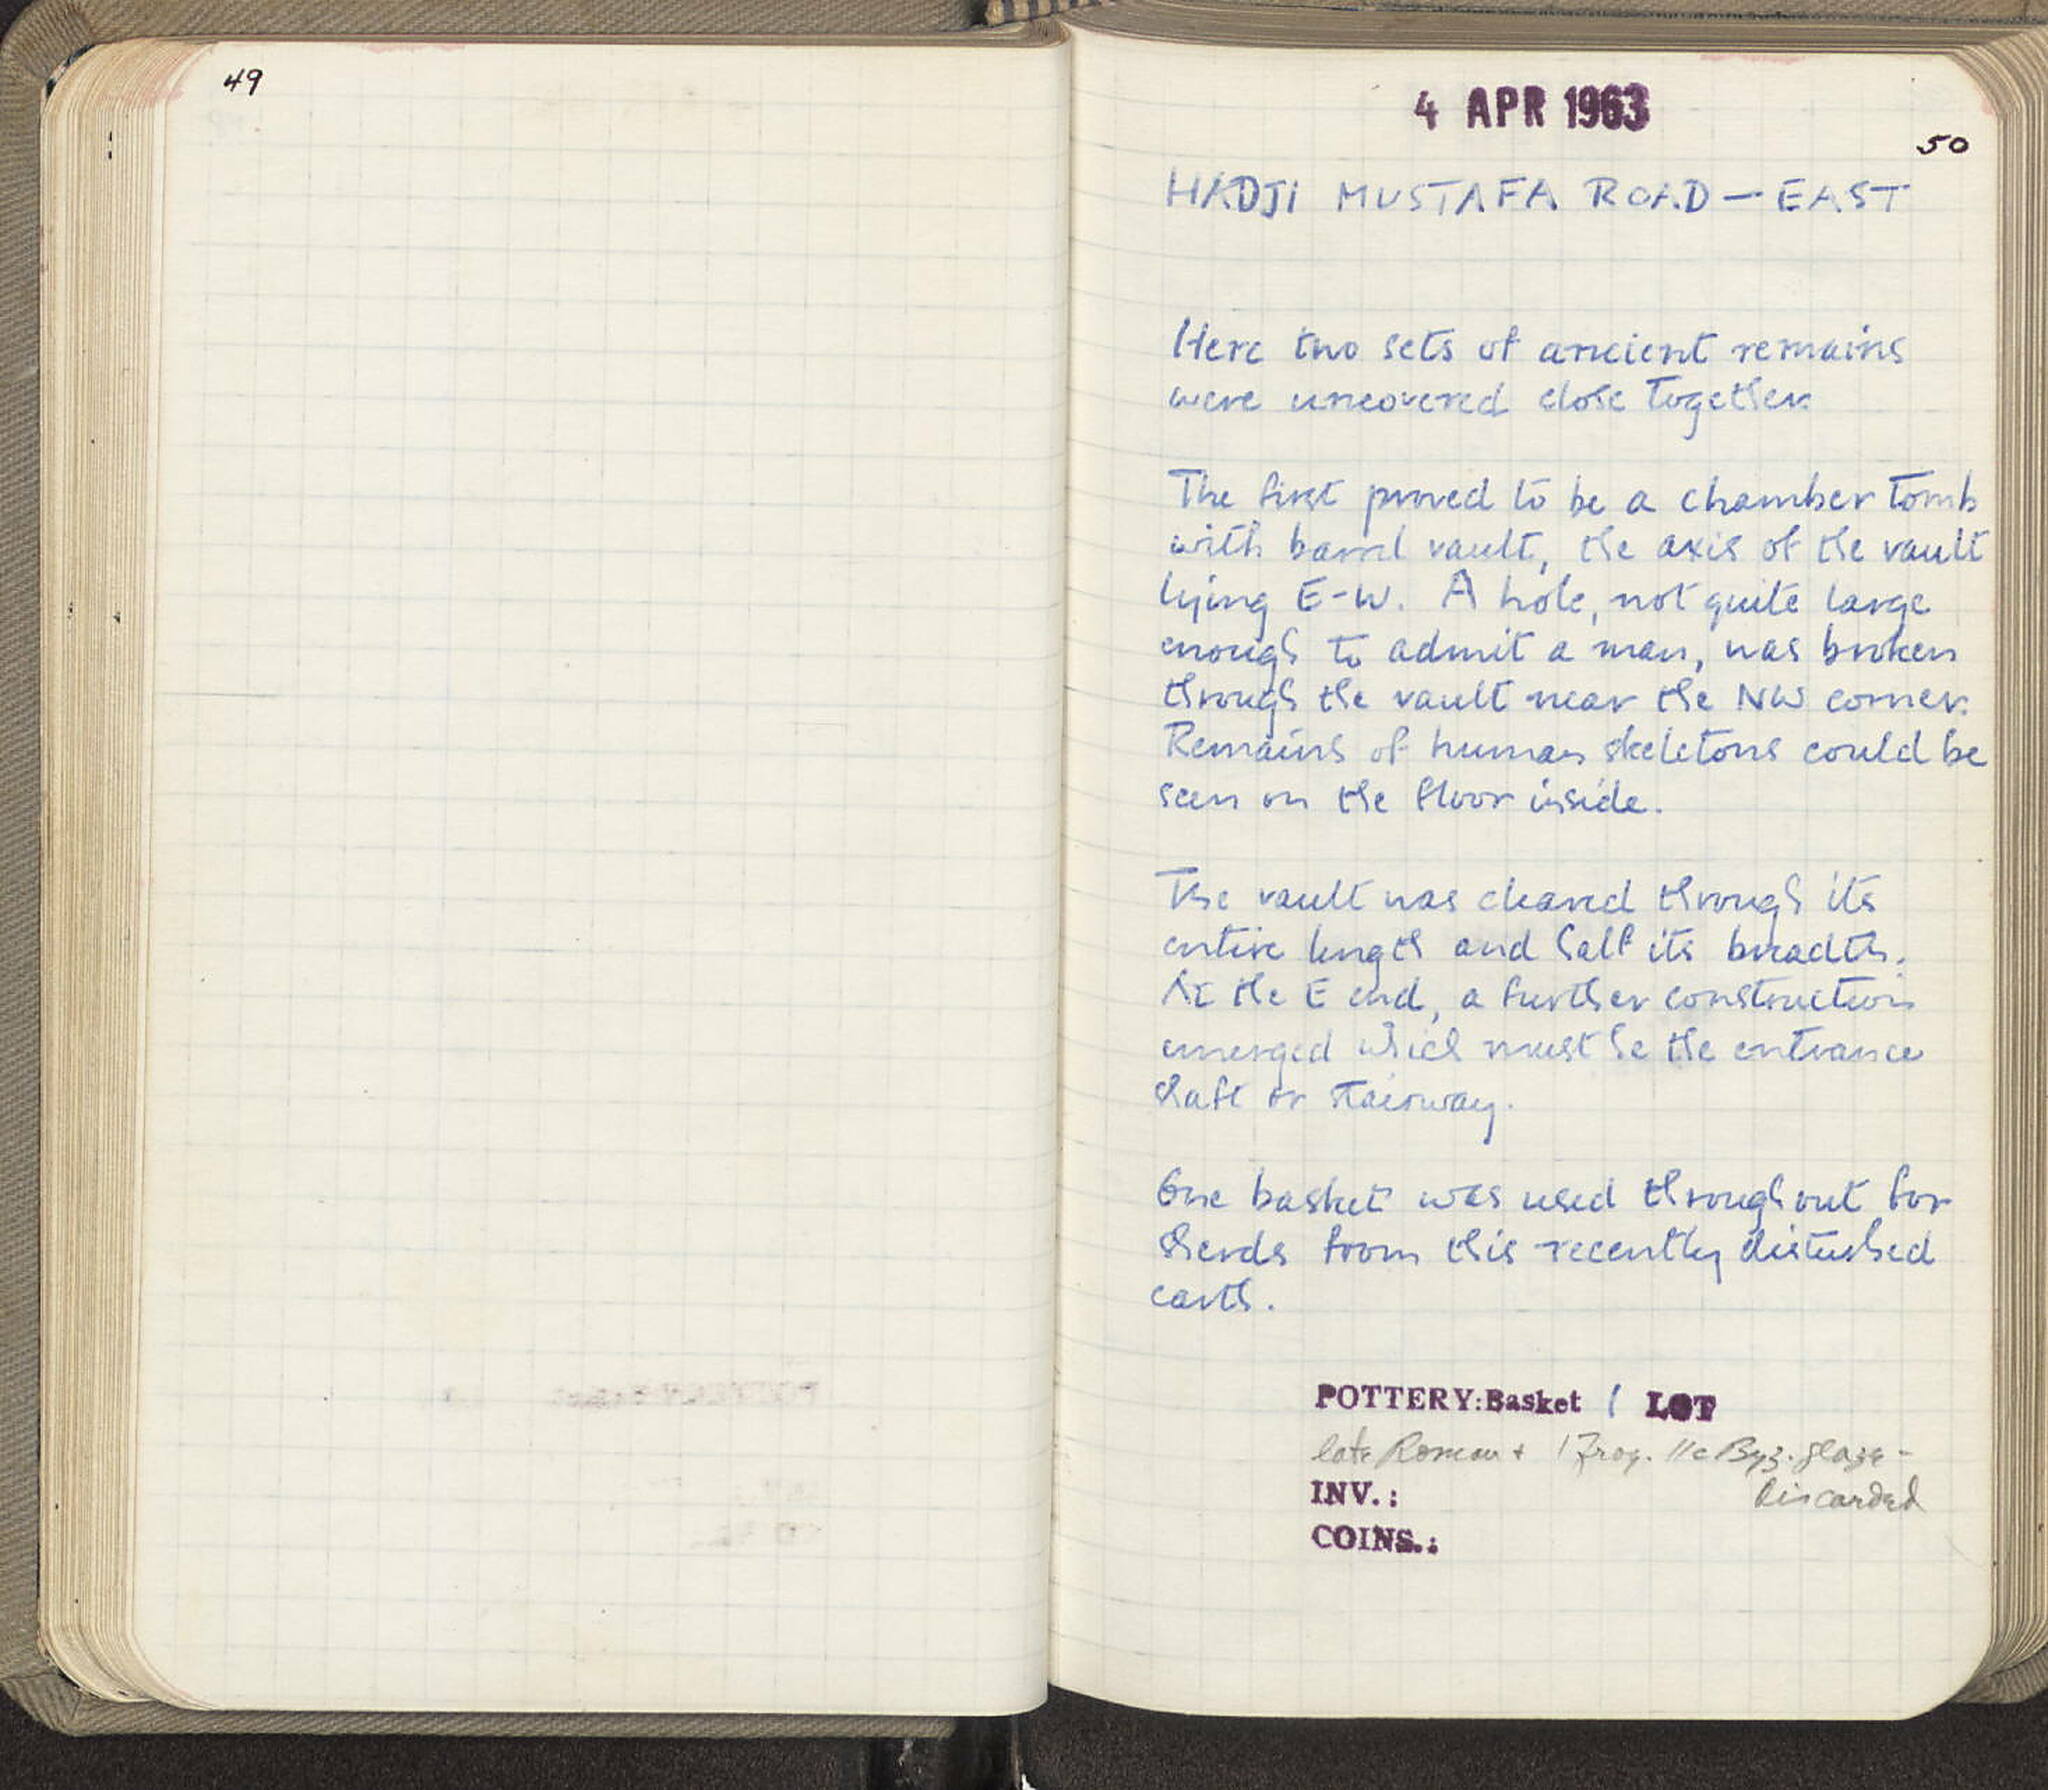 49
4 APR 1963
50
HADJI MUSTAFA ROAD — EAST
Here two sets of ancient remains
were uncovered close together.
The first proved to be a chamber tomb
with barrel vault, the axis of the vault
lying E-W. A hole, not quite large
enough to admit a man, was broken
through the vault near the NW corner.
Remains of human skeletons could be
seen on the floor inside.
The vault was cleared through its
entire length and half its breadth.
At the E end, a further construction
emerged which must be the entrance
shaft or stairway.
One basket was used throughout for
sherds from this recently disturbed
earth.
POTTERY: Basket 1 LOT
late Roman + 1 frag. 11c Byz. glaze -
INV.:
Discarded
COINS.: